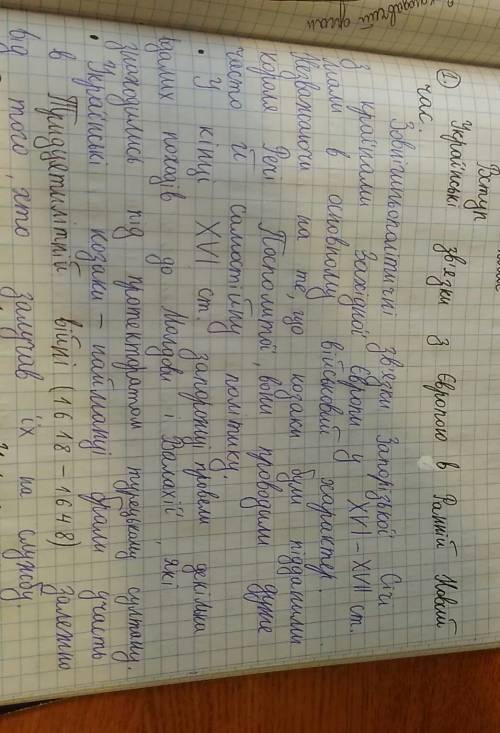 Вступ
① Українські зв'язки з Європою в Ранній Новий
час.
Зовнішньополітичні зв'язки Запорізької Січі
з країнами Західної Європи у XVI-XVII ст.
мали в основному військовий характер.
Незважаючи на те, що козаки були підданими
короля Речі Посполитої, вони проводили дуже
часто й самостійну політику.
• У кінці XVI ст. запорожці провели декілька
вдалих походів до Молдови і Валахії, які
знаходились під протекторатом турецького султану.
• Українські козаки - найманці брали участь
в Тридцятилітній війні (1618-1648) Залежно
від того, хто залучав їх на службу,